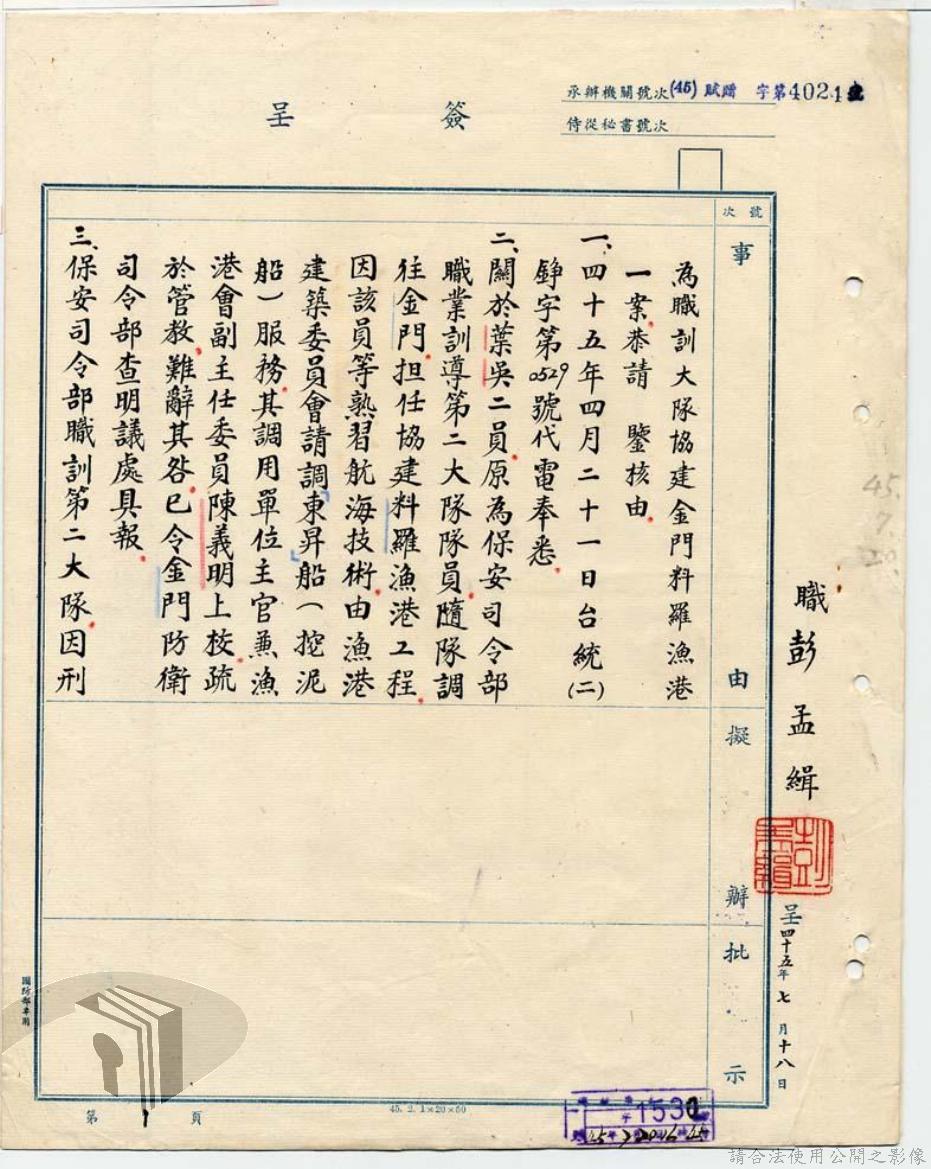 簽呈
承辦機關號次(45) 賦贈 字第4021號
侍從秘書號次
號次
事由
擬辦
批示
為職訓大隊協建金門料羅漁港
一案恭請 鑒核由
一、四十五年四月二十一日台統(二)
錚字第0529號代電奉悉
二、關於葉吳二員原為保安司令部
職業訓導第二大隊隊員隨隊調
往金門担任協建料羅漁港工程
因該員等熟習航海技術由漁港
建築委員會請調「東昇」船(挖泥
船)服務其調用單位主官兼漁
港會副主任委員陳義明上校疏
於管教難辭其咎已令金門防衛
司令部查明議處具報
三、保安司令部職訓第二大隊因刑
職彭孟緝
呈四十五年七月十八日
45.
7.
20.
國防部專用
第1頁
45. 2. 1×20×50
請合法使用公開之影像